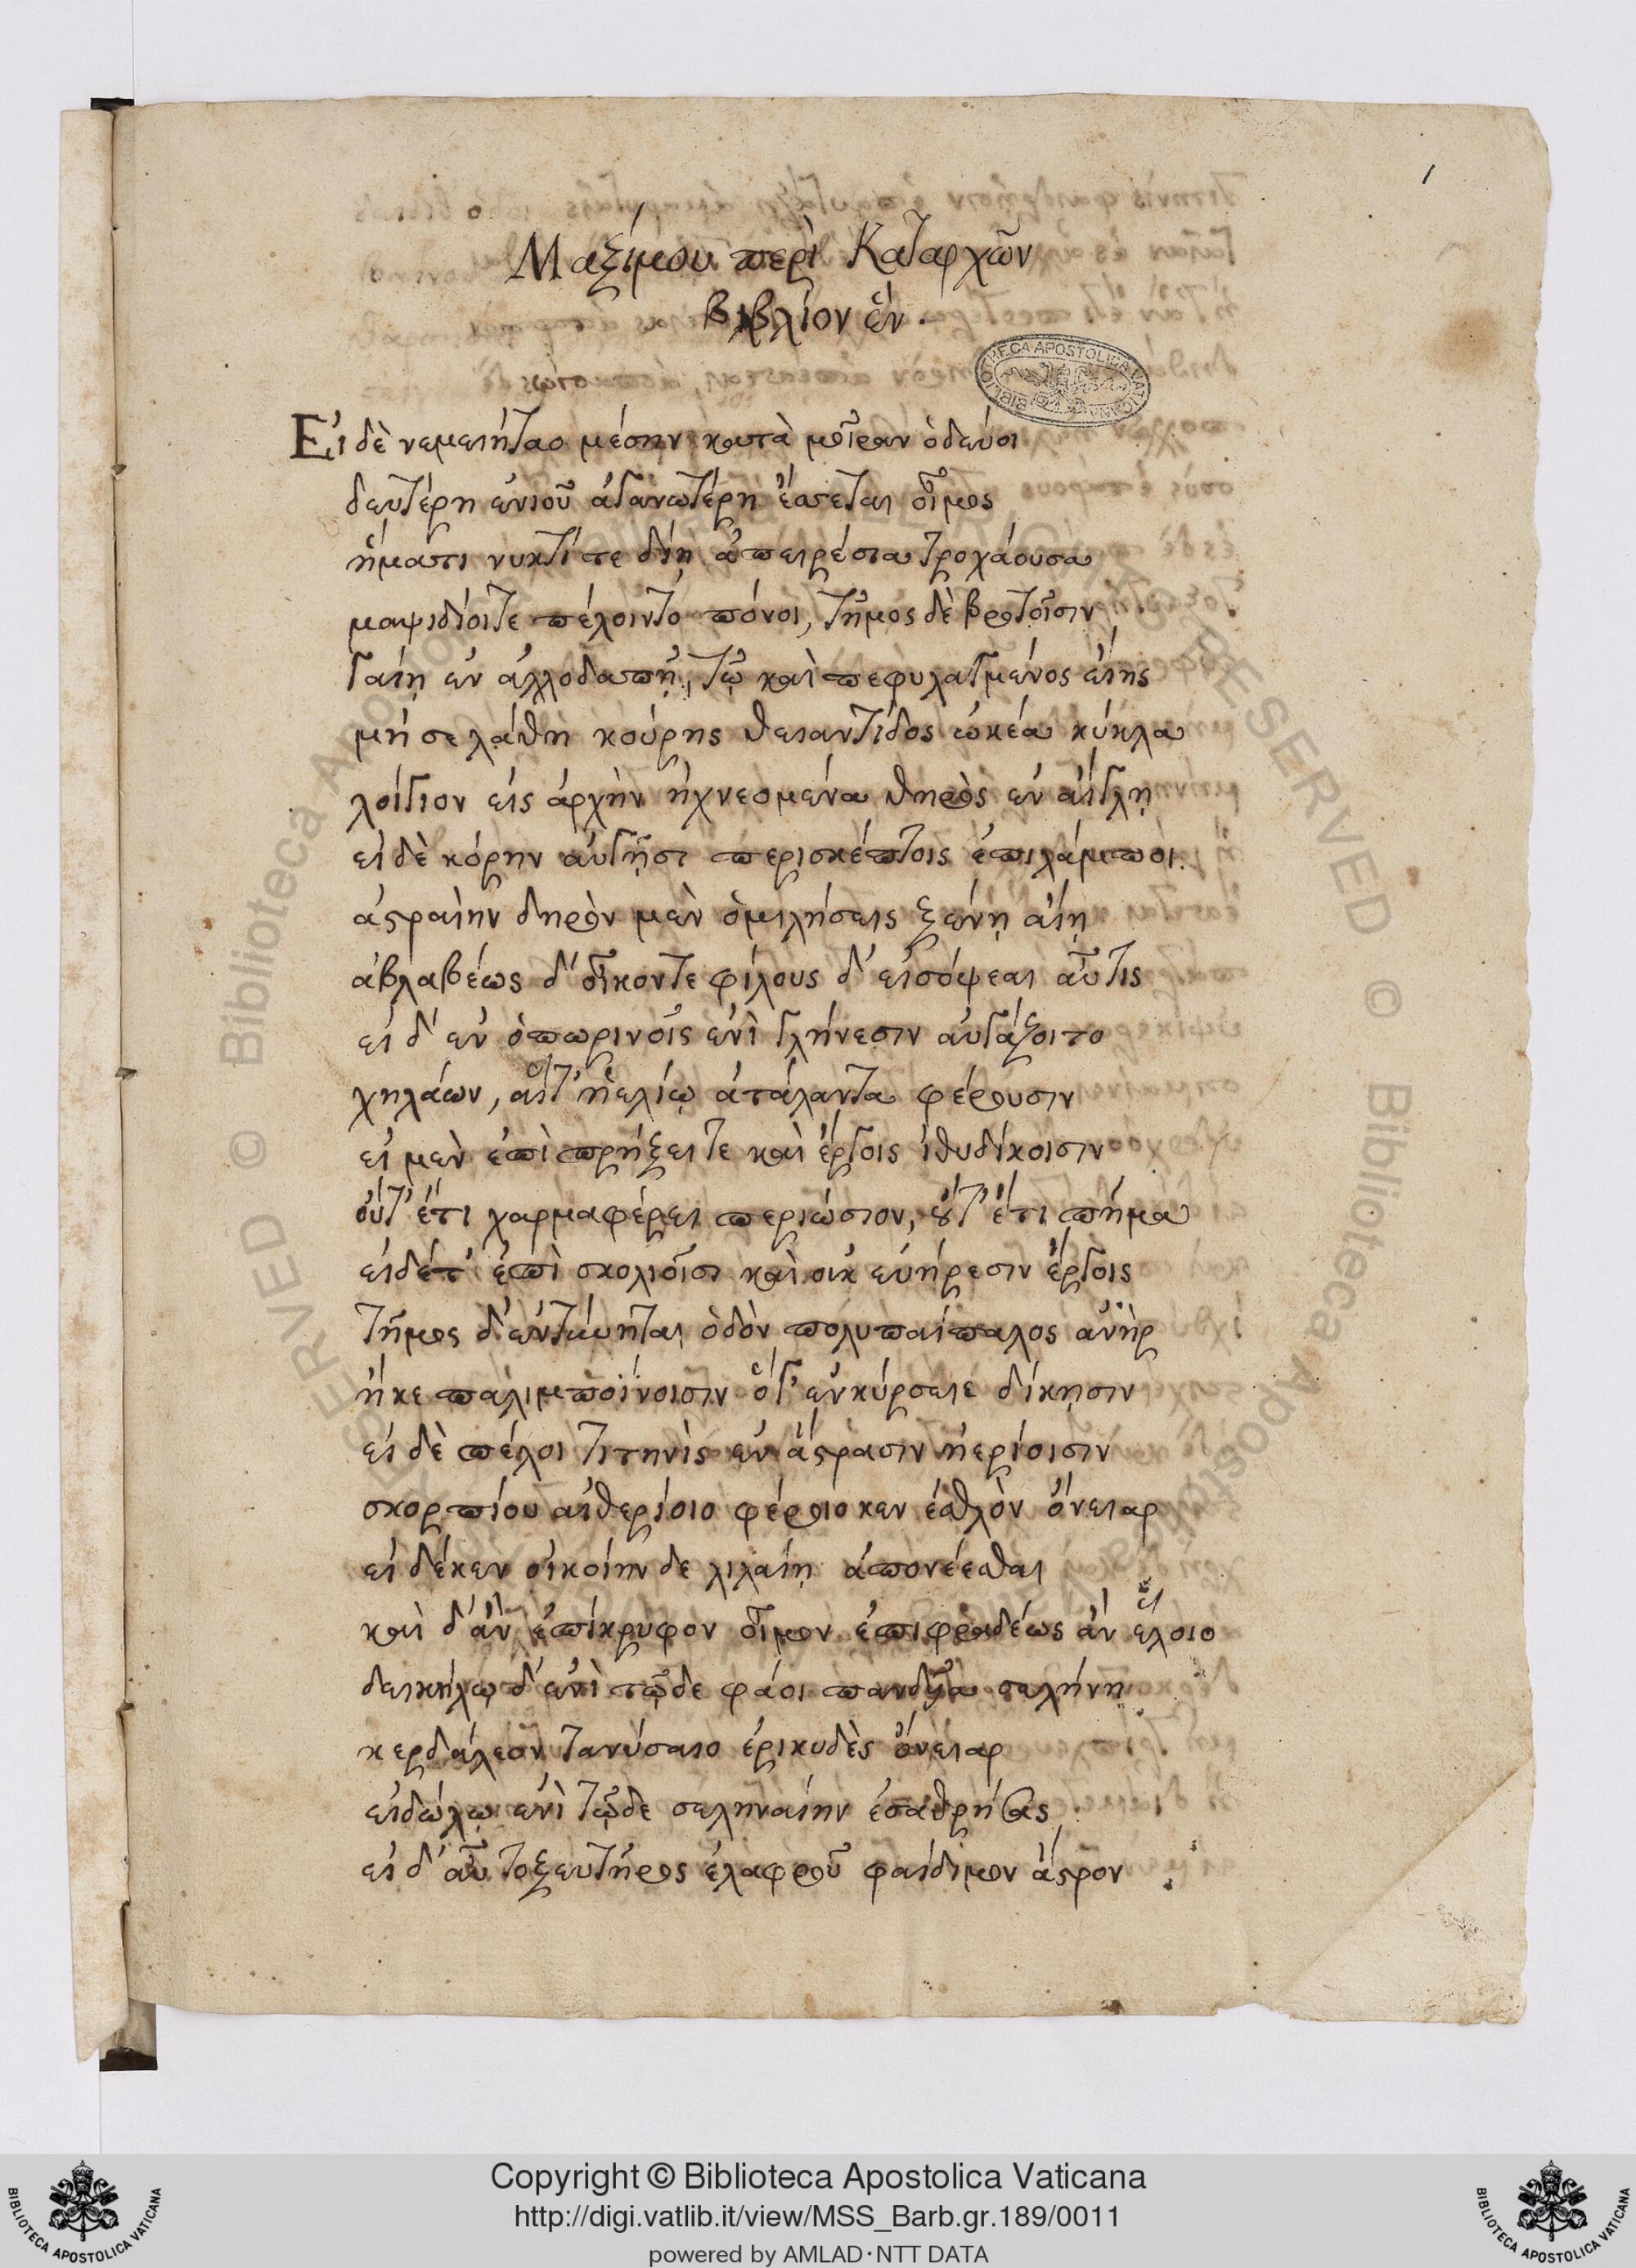 1
Μαξίμου περὶ Καταρχῶν
βιβλίον ἕν.
Εἰ δὲ νεμειήταο μέσην κατὰ μοῖραν ὁδεύοι
δευτέρη ἐνιοῦ ἀγανωτέρη ἔσσεται οἶμος
ἤματι νυκτί τε δίη ἀπειρέσια τροχάουσα
μαψιδίοιτε πέλοιντο πόνοι, τῆμος δὲ βροτοῖσιν
γαίῃ ἐν ἀλλοδαπῇ, τῷ καὶ πεφυλαγμένος εἴης
μή σε λάθῃ κούρης θειαντίδος ὠκέα κύκλα
λοίγιον εἰς ἀρχὴν ἠχνεομένα θηρὸς ἐν αἴγλῃ
εἰ δὲ κόρην αὐγῇσι περισκέπτοις ἐπιλάμποι
ἀστραίην δηρὸν μὲν ὁμιλήσεις ξείνῃ αἴῃ
ἀβλαβέως δ' οἶκοντε φίλους δ' εἰσόψεαι αὖτις
εἰ δ' ἐν ὀπωρινοῖς ἐνὶ γλήνεσιν αὐγάζοιτο
χηλάων, αἵτ' ἠελίῳ ἀτάλαντα φέρουσιν
εἰ μὲν ἐπὶ πρήξει τε καὶ ἔργοις ἰθυδίκοισιν
οὔτ' ἔτι χαρμαφέρει περιώσιον, οὔτ' ἔτι πήμα
εἰδέτ' ἐπὶ σκολιοῖσι καὶ οὐκ εὐήρεσιν ἔργοις
τῆμος δ' ἐντύνηται ὁδὸν πολυπαίπαλος ἀνὴρ
ἤκε παλιμποίνοισιν ὅγ' ἐνκύρσειε δίκησιν
εἰ δὲ πέλοι τιτηνὶς ἐν ἄστρασιν ἠερίοισιν
σκορπίου αἰθερίοιο φέροιο κεν ἐσθλὸν ὄνειαρ
εἰ δέκεν οἰκοίην δε λιλαίῃ ἀπονέεσθαι
καὶ δ' ἂν ἐπίκρυφον οἶμον ἐπιφραδέως ἂν ἕλοιο
δεικήλῳ δ' ἐνὶ τῷδε φάοι πανδῖα σελήνη
κερδάλεον τανύσαιο ἐρικυδὲς ὄνειαρ
εἰδώλῳ ἐνὶ τῷδε σεληναίην ἐσαθρήσας
εἰ δ' αὖ τοξευτῆρος ἐλαφροῦ φαίδιμον ἄστρον
BIBLIOTHECA APOSTOLICA VATICANA
© Biblioteca Apostolica Vaticana ALL RIGHTS RESERVED
Copyright © Biblioteca Apostolica Vaticana
http://digi.vatlib.it/view/MSS_Barb.gr.189/0011
powered by AMLAD·NTT DATA
BIBLIOTECA APOSTOLICA VATICANA
BIBLIOTECA APOSTOLICA VATICANA